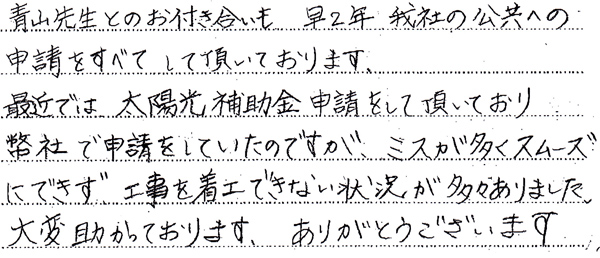 青山先生とのお付き合いも 早2年 我社の公共への
申請をすべて して頂いております、
最近では 太陽光補助金申請をして頂いており
幣社で申請をしていたのですが、ミスが多くスムーズ
にできず 工事を着工できない状況が多々ありました、
大変助かっております、 ありがとうございます